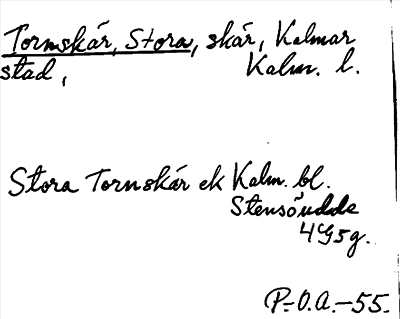 Tornskär, Stora, skär, Kalmar
stad, Kalm. l.
Stora Tornskär ek Kalm. bl.
Stensöudde
4G5g.
P.-O.A.-55.